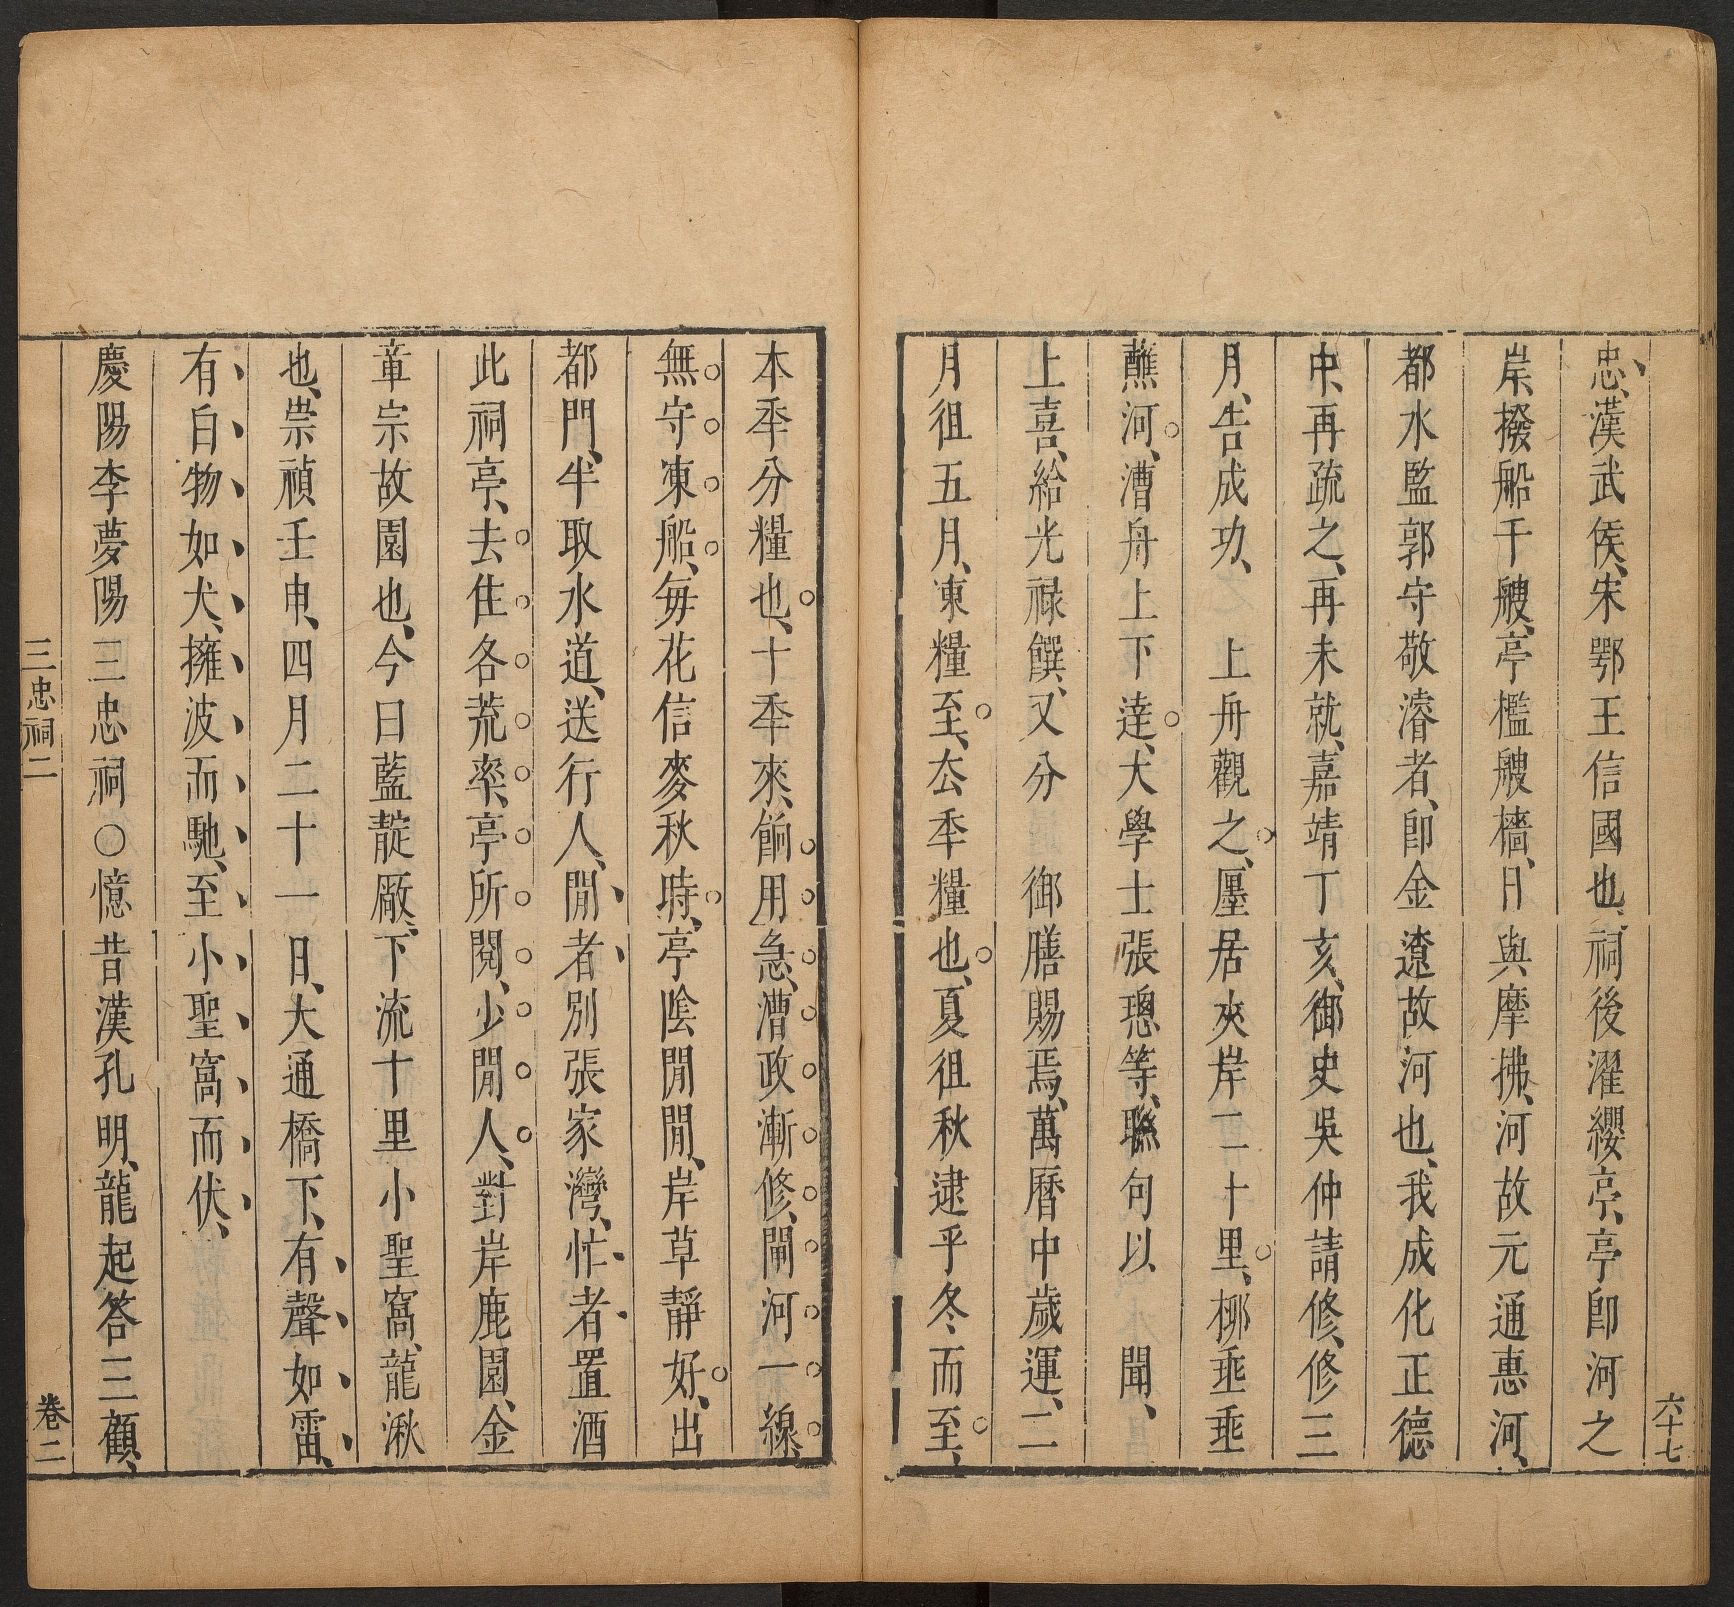 忠、漢武侯、宋鄂王信國也、祠後濯纓亭、亭卽河之
岸、撥船千艘、亭檻艘檣、日與摩拂、河故元通惠河、
都水監郭守敬濬者、卽金遼故河也、我成化正德
中、再疏之、再未就、嘉靖丁亥、御史吳仲請修、修三
月、告成功、　上舟觀之、廛居夾岸二十里、柳垂垂
蘸河、漕舟上下達、大學士張璁等、聯句以　聞、
上喜、給光祿饌、又分　御膳賜焉、萬曆中歲運、二
月徂五月、凍糧至、厺秊糧也、夏徂秋逮乎冬而至、
六十七
本秊分糧也、十秊來、餉用急、漕政漸修、閘河一線、
無守凍船、每花信麥秋時、亭陰閒閒、岸草靜好、出
都門、半取水道、送行人、閒者別張家灣、忙者置酒
此祠亭、去住各荒率、亭所閱、少閒人、對岸鹿園、金
章宗故園也、今曰藍靛厰、下流十里小聖窩、龍湫
也、崇禎壬申、四月二十一日、大通橋下、有聲如雷、
有白物如犬、擁波而馳、至小聖窩而伏、
慶陽李夢陽三忠祠〇憶昔漢孔明、龍起答三顧、
三忠祠二
卷二